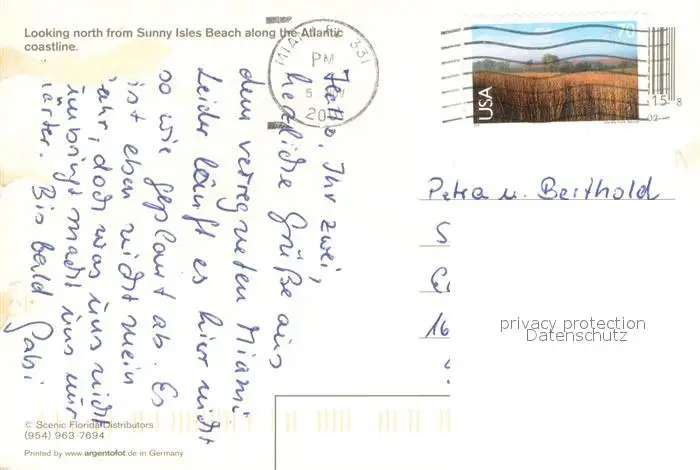 Looking north from Sunny Isles Beach along the Atlantic
coastline.
MIAMI FL 331
PM
5
20
70
USA
15 8
02
Hallo, Ihr zwei,
herzliche Grüße aus
dem verregneten Miami.
Leider läuft es hier nicht
so wie geplant ab. Es
ist eben nicht mein
Jahr, doch was uns nicht
umbringt macht uns nur
härter. Bis bald Gabi
Petra u. Berthold
S
16
privacy protection
Datenschutz
© Scenic Florida Distributors
(954) 963-7694
Printed by www.argentofot.de in Germany